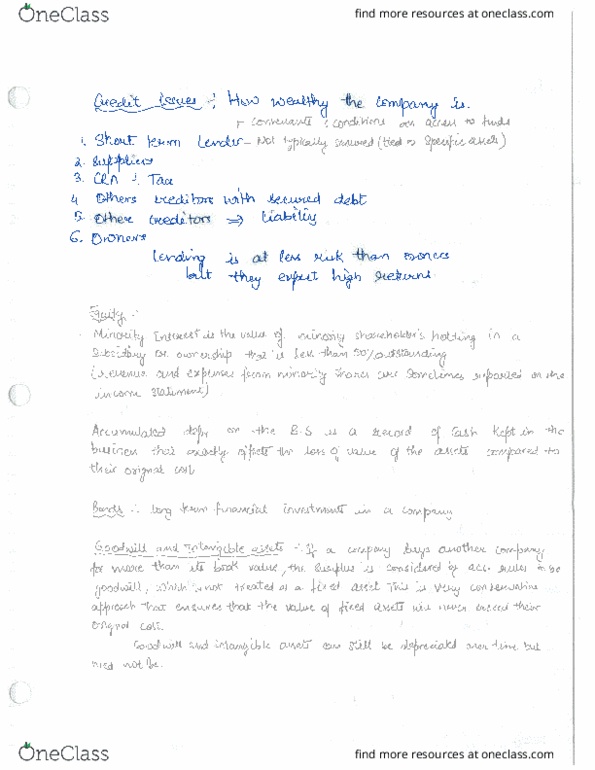 OneClass
find more resources at oneclass.com
Credit issues :- How wealthy the company is.
convenants : conditions on access to funds
1. Short term lender - Not typically secured (tied to specific assets)
2. Suppliers
3. CRA : Tax
4 Others creditors with secured debt
5. Other creditors ⇒ liability
6. Owners
lending is at less risk than owners
but they expect high returns
Equity :-
Minority Interest is the value of minority shareholder's holding in a
subsidary or ownership that is less than 50% outstanding
(revenue and expenses from minority shares are sometimes reported on the
income statement)
Accumulated depr on the B.S is a record of cash kept in the
business that exactly offsets the loss of value of the assets compared to
their original cost
Bonds :- long term financial investments in a company
Goodwill and Intangible assets :- If a company buys another company
for more than its book value, the surplus is considered by acc. rules to be
goodwill, which is not treated as a fixed asset This is very conservative
approach that ensures that the value of fixed assets will never exceed their
original cost.
Goodwill and intangible assets can still be depreciated over time but
need not be.
OneClass
find more resources at oneclass.com